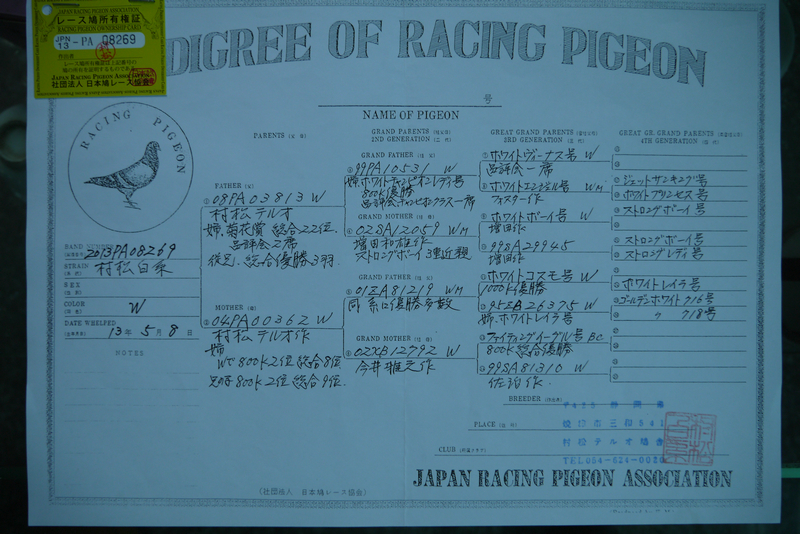 JAPAN RACING PIGEON ASSOCIATION
レース鳩所有権証
RACING PIGEON OWNERSHIP CARD
JPN
13 - PA 08269
JAPAN RACING PIGEON ASSOCIATION
社団法人 日本鳩レース協会
DIGREE OF RACING PIGEON
号
NAME OF PIGEON
RACING PIGEON
BAND NUMBER
2013PA08269
STRAIN
村松白系
SEX
COLOR
W
DATE WHELPED
13年 5月 8日
NOTES
PARENTS
FATHER
08PA03813 W
村松テルオ
姉、菊花賞 総合22位
品評会2席
総合優勝3羽
MOTHER
04PA00362 W
村松テルオ作
姉
Wで800K2位 総合8位
800K2位 総合9位
GRAND PARENTS
2ND GENERATION
GRAND FATHER
99PA10531 W
姉ホワイトチャンピオンレディ号
800K優勝
品評会チャンピオンクラス一席
GRAND MOTHER
02SA12059 WM
増田和雄作
ストロングボーイ3重近親
GRAND FATHER
01ZA81219 WM
同系に優勝多数
GRAND MOTHER
02XB12792 W
今井雅元作
GREAT GRAND PARENTS
3RD GENERATION
ホワイトヴィーナス号 W
品評会一席
ホワイトエンジェル号 WM
フォスター作
ホワイトボーイ号 W
増田作
99SA29945
増田作
ホワイトコスモ号 W
1000K優勝
95ZB26375 W
姉、ホワイトレイラ号
ファイティングイーグル号 BC
800K総合優勝
99SA81310 W
佐治作
GREAT GR. GRAND PARENTS
4TH GENERATION
ジェットサンキング号
ホワイトプリンセス号
ストロングボーイ号
ストロングボーイ号
ストロングレディ号
ホワイトレイラ号
ゴールデンホワイト716号
〃 718号
BREEDER
PLACE
村松テルオ鳩舎
CLUB
TEL054-624-0020
JAPAN RACING PIGEON ASSOCIATION
(社団法人 日本鳩レース協会)